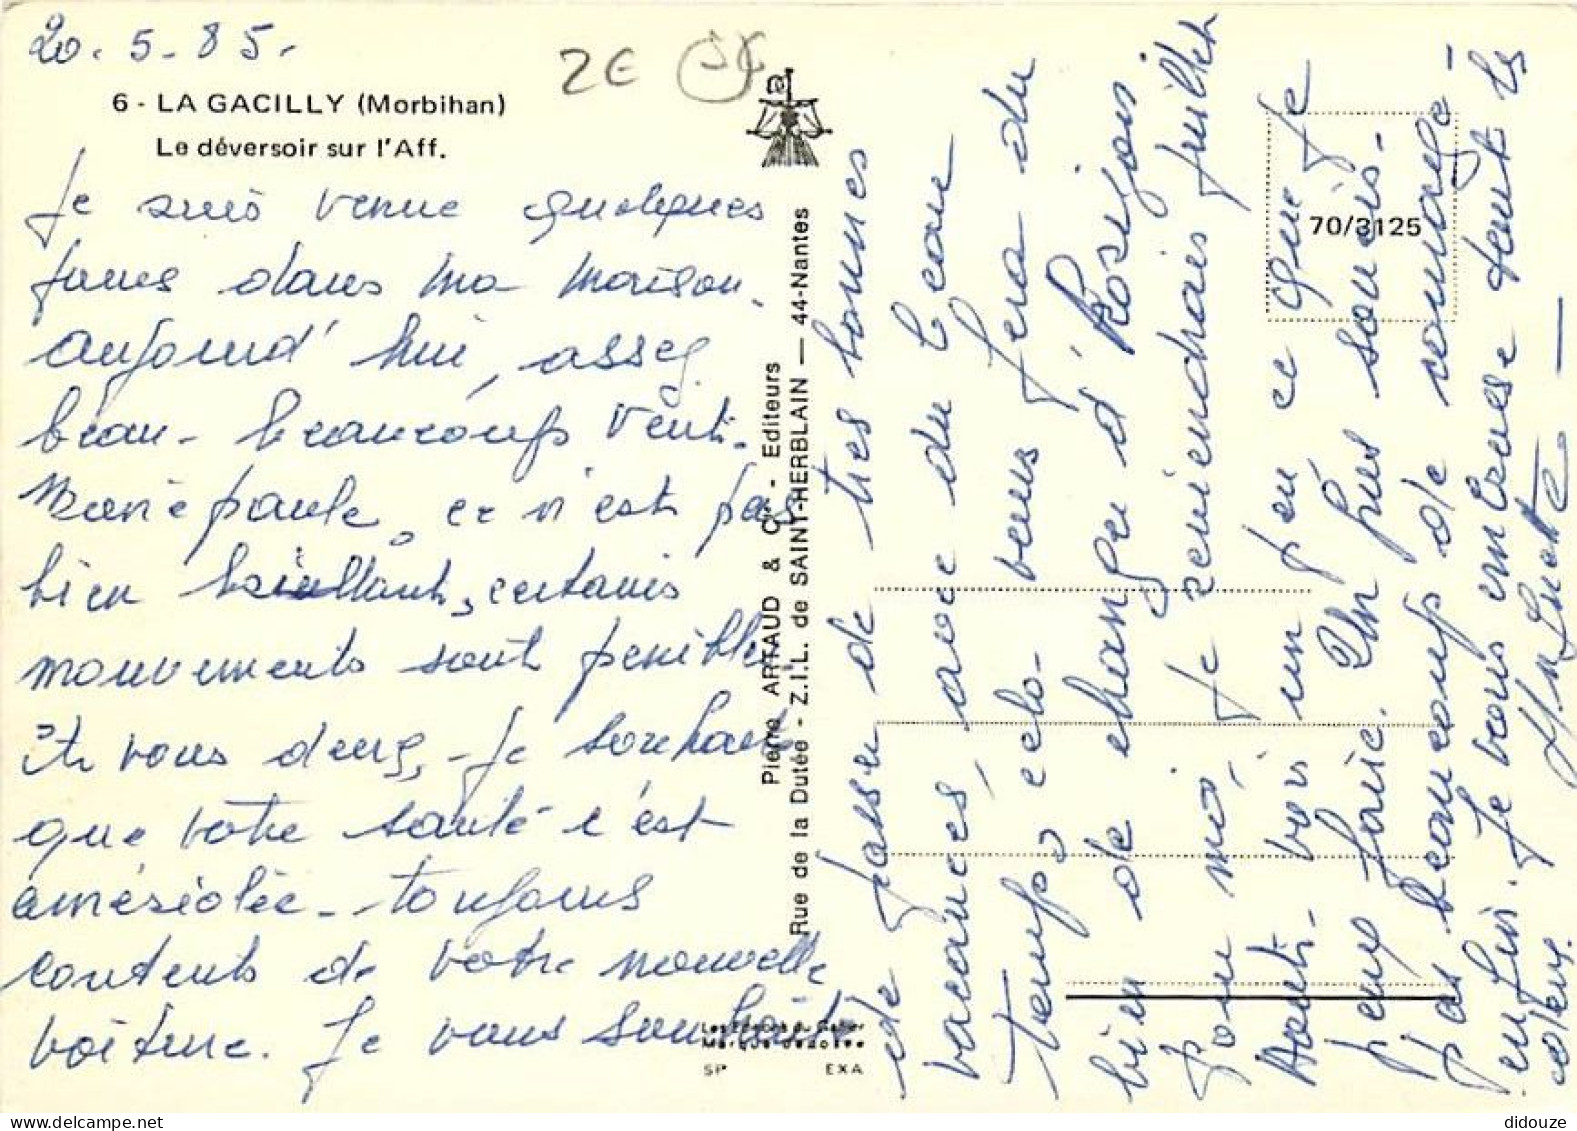 20.5-85-
2€
6 - LA GACILLY (Morbihan)
Le déversoir sur l'Aff.
Je suis venue quelques
jours dans ma maison.
aujourd'hui, assez
beau - beaucoup vent.
Marie paule, ce n'est pas
bien brillant, certains
mouvements sont penibles
Et vous deux, - je souhaite
que votre santé c'est
améliolée - toujours
contents de votre nouvelle
voiture. Je vous souhaite
Pierre ARTAUD & Cie - Editeurs
Rue de la Dutée - Z.I.L. de SAINT-HERBLAIN — 44-Nantes
Les Editions du Gabier
Marque déposée
SP EXA
70/3125
de passer de tres bonnes
vacances, avec du beau
temps etc- vous fera du
bien de changer d'
pour moi, je reviendrais juillet
Aout- voir un peu ce que je
peux faire. Un puis soucis-
pas beaucoup de courage-
enfin. Je vous embrasse tout les
deux.